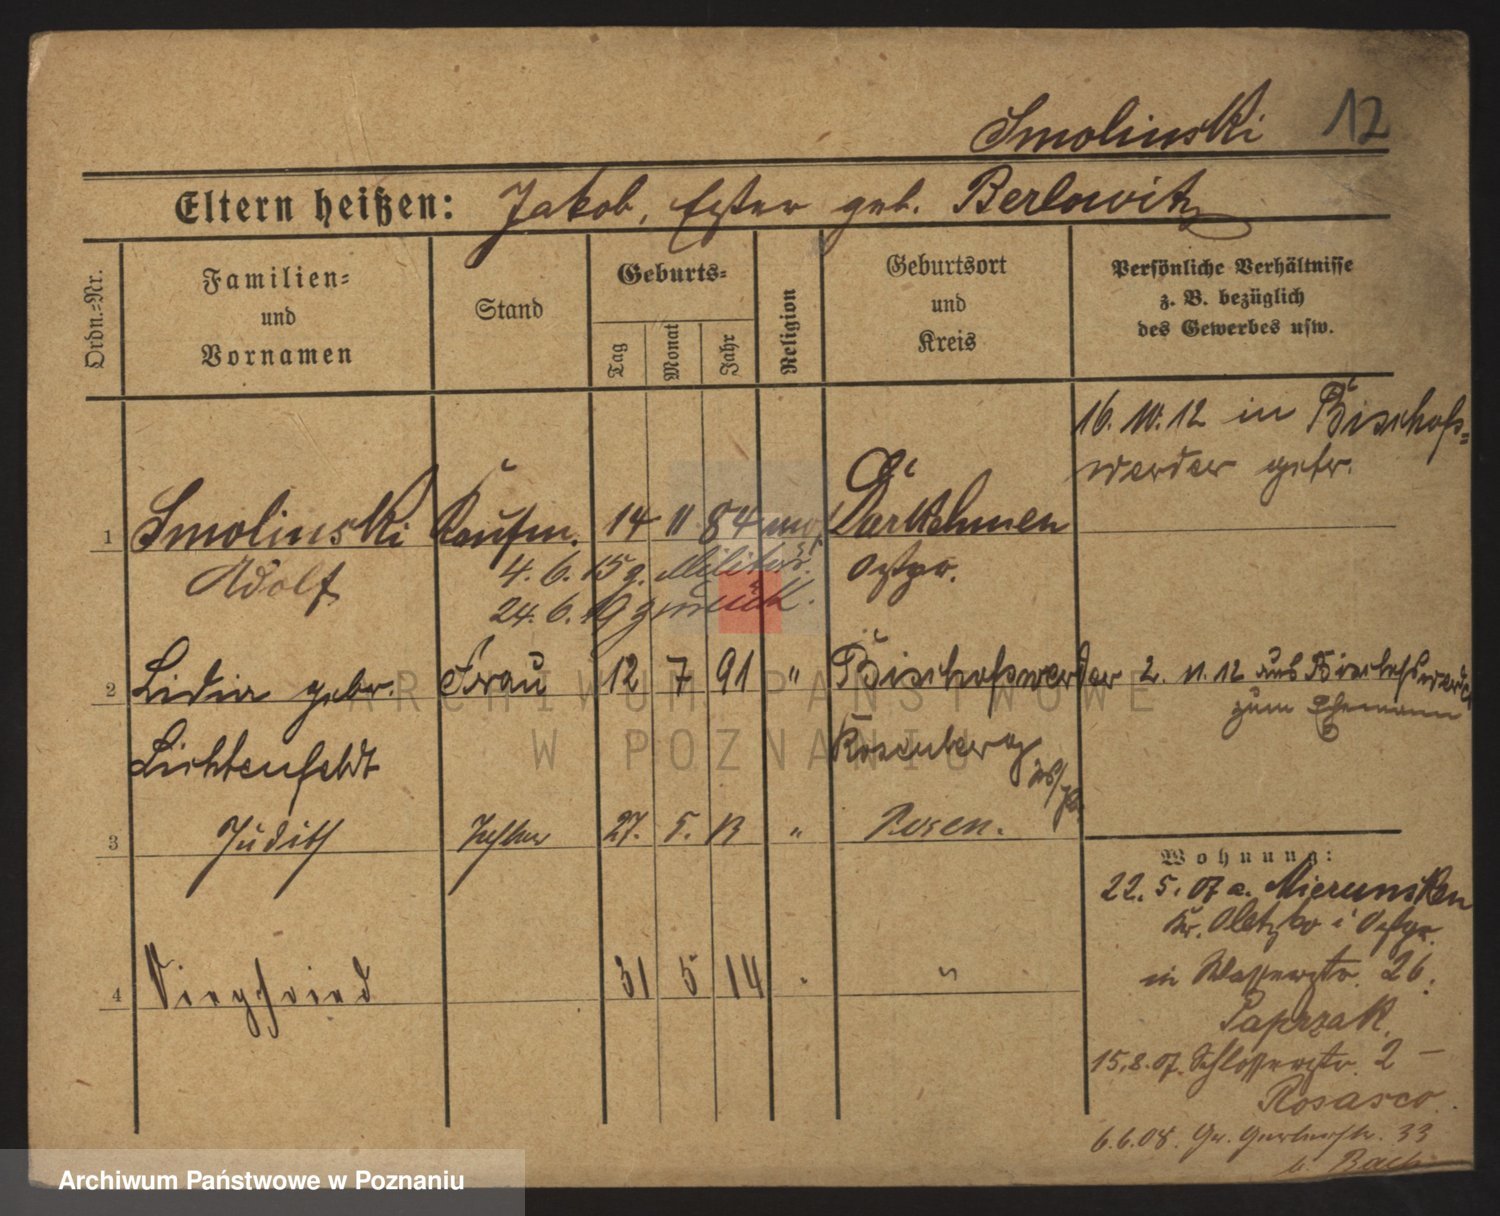 Smolinski 12
Eltern heißen: Jakob, Ester geb. Berlowitz
Ordn.-Nr.
Familien-
und
Vornamen
Stand
Geburts-
Tag
Monat
Jahr
Religion
Geburtsort
und
Kreis
Persönliche Verhältnisse
z. B. bezüglich
des Gewerbes usw.
16. 10. 12 in Bischofs-
werder getr.
1 Smolinski Kaufm. 14 11 84 mos. Darkehmen
Adolf
Ostpr.
4. 6. 15 z. Militär.
24. 6. 19 zurück.
2 Lidia gebr. Frau 12 7 91 " Bischofswerder
Lichtenfeldt
Rosenberg
W/Pr.
2. 11. 12 aus Bischofswerder
zum Ehemann
3 Judith Tochter 27. 5. 13 " Posen.
4 Siegfried 31 5 14 "
Wohnung:
22. 5. 07 a. Mierunsken
Kr. Oletzko i Ostpr.
in Wasserstr. 26.
Paprzak.
15. 8. 07. Schlosserstr. 2 –
Rosasco.
6. 6. 08. Gr. Gerberstr. 33
b. Bach
ARCHIWUM PAŃSTWOWE
W POZNANIU
Archiwum Państwowe w Poznaniu